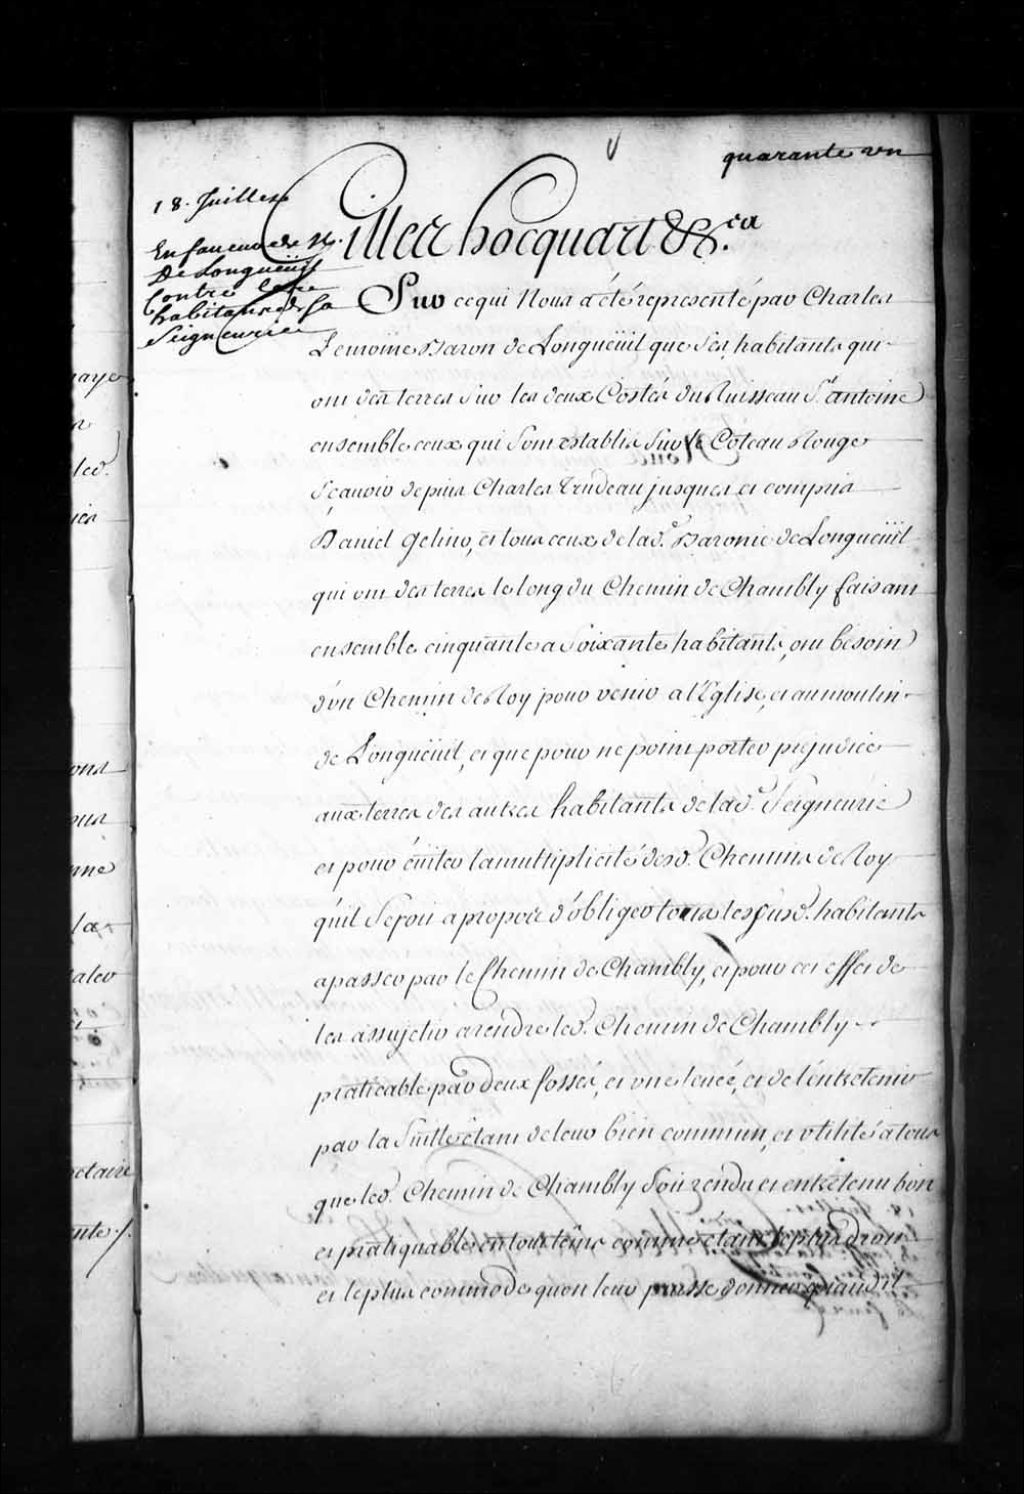 quarante un
18. Juillet
En faveur de M.
De Longueüil
Contre les
habitans de sa
Seigneurie
Gilles hocquart &c.ca
Sur ce qui Nous a été representé par Charles
Lemoine Baron de Longueüil que ses habitants qui
ont des terres sur les deux Costés du Ruisseau St. antoine
ensemble ceux qui sont establis sur le Côteau Rouge
sçavoir depuis Charles Trudeau jusques et compris
Daniel Gelino, et tous ceux de lad.e Baronie de Longueüil
qui ont des terres le long du Chemin de Chambly faisant
ensemble cinquante a soixante habitants, ont besoin
d'un Chemin de Roy pour venir a l'Eglise, et au moulin
de Longueüil, et que pour ne point porter prejudice
aux terres des autres habitants de lad.e Seigneurie
et pour éviter la multiplicité desd. Chemins de Roy
qu'il seroit apropos d'obliger tous les susd. habitants
a passer par le Chemin de Chambly, et pour cet effet de
les assujetir a rendre led. Chemin de Chambly
praticable par deux fossés, et une levée, et de l'entretenir
par la suitte étant de leur bien commun, et utilité a tous
que led. Chemin de Chambly soit rendu et entretenu bon
et pratiquable en tout têms comme étant le plus droit
et le plus commode qu'on leur puisse donner quand il
aye
led.
ies
ons
our
nne
la
aler
etaire
nte /.